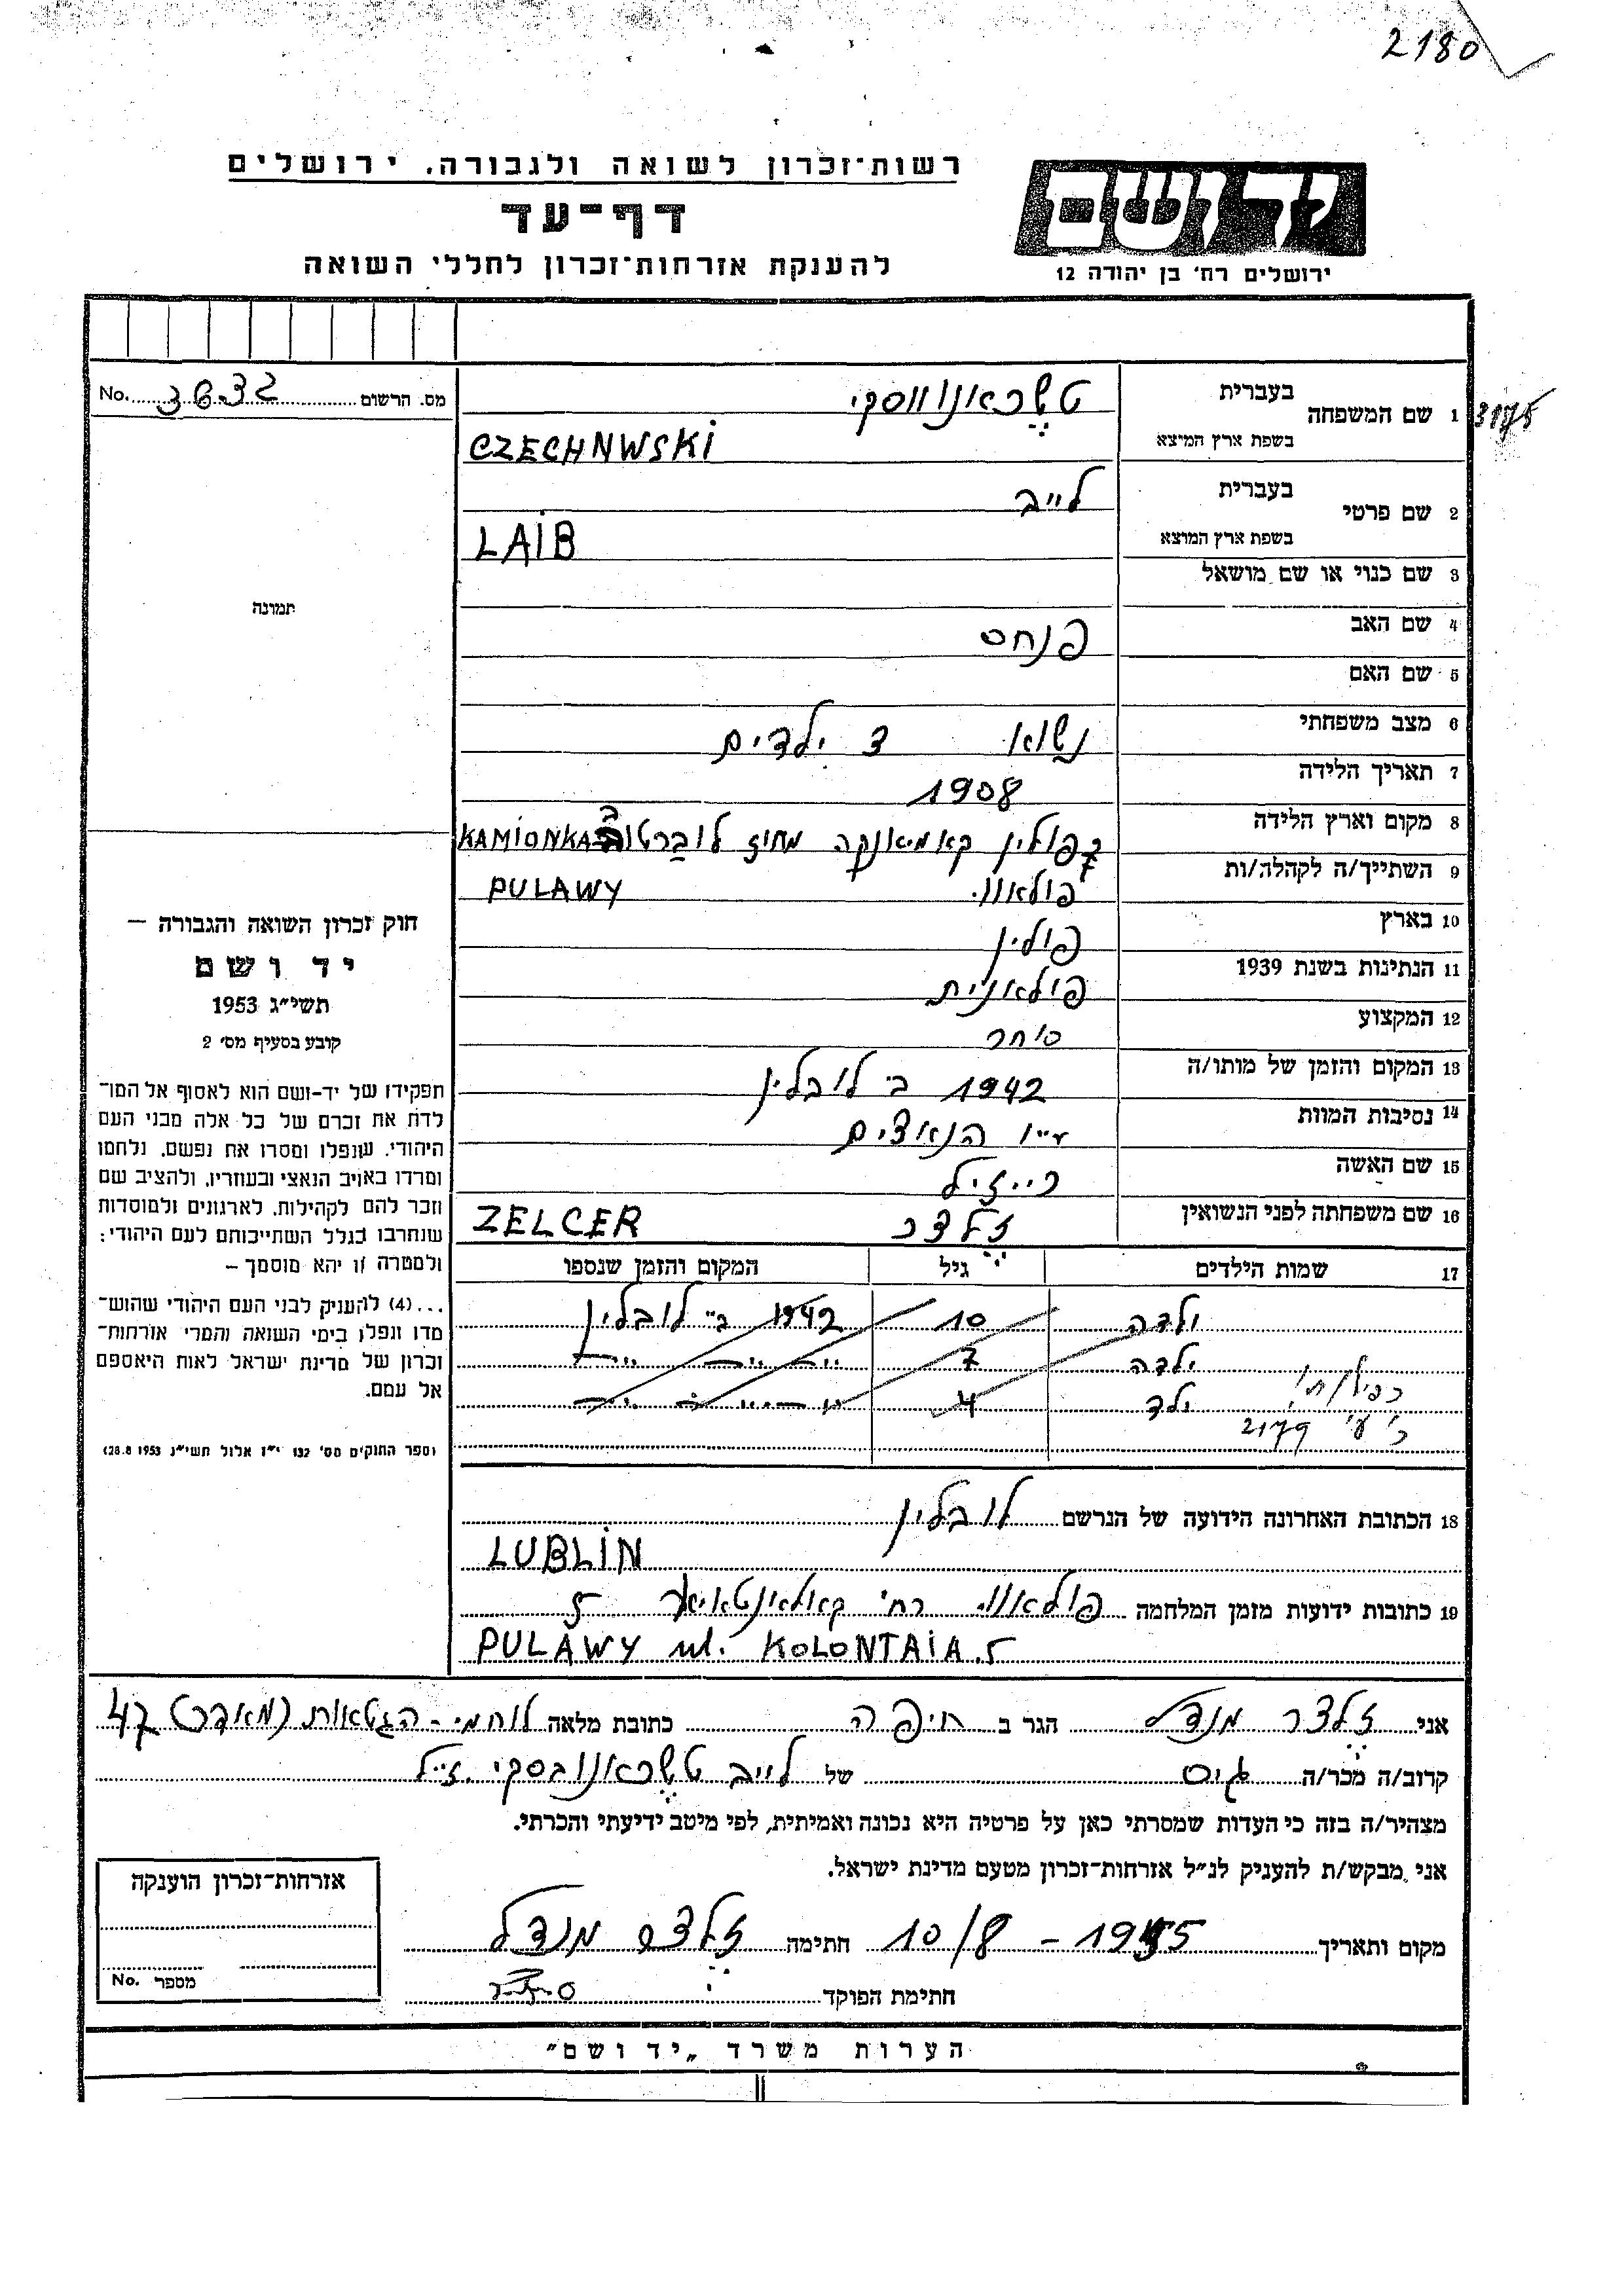 2180
רשות־זכרון לשואה ולגבורה, ירושלים
דף־עד
להענקת אזרחות־זכרון לחללי השואה
ידושם
ירושלים רח' בן יהודה 12
מס. הרשום 3632 No.
1 שם המשפחה
בעברית טשכאנווסקי
בשפת ארץ המוצא CZECHNWSKI
2 שם פרטי
בעברית לייב
בשפת ארץ המוצא LAIB
3 שם כנוי או שם מושאל
4 שם האב פנחס
5 שם האם
6 מצב משפחתי נשוא 3 ילדים
7 תאריך הלידה 1908
8 מקום וארץ הלידה בפולין קאמיאנקה מחוז לוברטוב KAMIONKA
9 השתייך/ה לקהלה/ות פולאווי PULAWY
10 בארץ פולין
11 הנתינות בשנת 1939 פולאנית
12 המקצוע סוחר
13 המקום והזמן של מותו/ה 1942 ב לובלין
14 נסיבות המוות ע"י הנאצים
15 שם האשה רייזיל
16 שם משפחתה לפני הנשואין זלצר ZELCER
17 שמות הילדים גיל המקום והזמן שנספו
ילדה 10 1942 ב" לובלין
ילדה 7
ילד 4
2179
18 הכתובת האחרונה הידועה של הנרשם לובלין
LUBLIN
19 כתובות ידועות מזמן המלחמה פולאווי רח' 5
PULAWY ul. KOLONTAIA 5
תמונה
חוק זכרון השואה והגבורה —
יד ושם
תשי״ג 1953
קובע בסעיף מס' 2
תפקידו של יד-ושם הוא לאסוף אל המו־
לדת את זכרם של כל אלה מבני העם
היהודי, שנפלו ומסרו את נפשם, נלחמו
ומרדו באויב הנאצי ובעוזריו, ולהציב שם
וזכר להם לקהילות, לארגונים ולמוסדות
שנחרבו בגלל השתייכותם לעם היהודי:
ולמטרה זו יהא מוסמך –
...(4) להעניק לבני העם היהודי שהוש־
מדו ונפלו בימי השואה והמרי אזרחות־
זכרון של מדינת ישראל לאות היאספם
אל עמם.
(ספר החוקים מס' 132 י״ז אלול תשי״ג 28.8.1953)
אני זלצר מנדל הגר ב חיפה כתובת מלאה לוחמי - הגטאות 47
קרוב/ה מכר/ה גיס של לייב טשכאנובסקי ז"ל
מצהיר/ה בזה כי העדות שמסרתי כאן על פרטיה היא נכונה ואמיתית, לפי מיטב ידיעתי והכרתי.
אני מבקש/ת להעניק לנ״ל אזרחות־זכרון מטעם מדינת ישראל.
מקום ותאריך 10/8 - 1955 חתימה זלצר מנדל
חתימת הפוקד
אזרחות־זכרון הוענקה
מספר No.
הערות משרד „יד ושם״